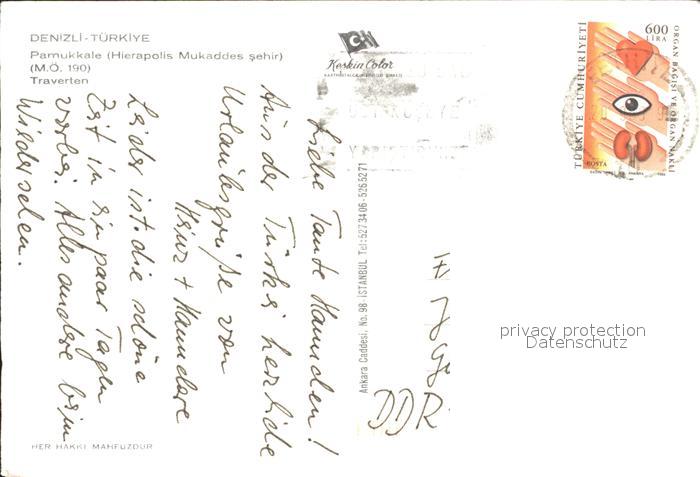 DENİZLİ-TÜRKİYE
Pamukkale (Hierapolis Mukaddes şehir)
(M.Ö. 190)
Traverten
Keskin Color
600
LİRA
TÜRKİYE CUMHURİYETİ
ORGAN BAĞIŞI VE ORGAN NAKLİ
POSTA
Liebe Tante Hannchen!
Aus der Türkei herzliche
Urlaubsgrüße von
Heinz + Hannelore
Leider ist die schöne
Zeit in ein paar Tagen
vorbei. Alles andere beim
Wiedersehen.
Ankara Caddesi, No. 98 - İSTANBUL Tel: 5273406-5265271
DDR
privacy protection
Datenschutz
HER HAKKI MAHFUZDUR